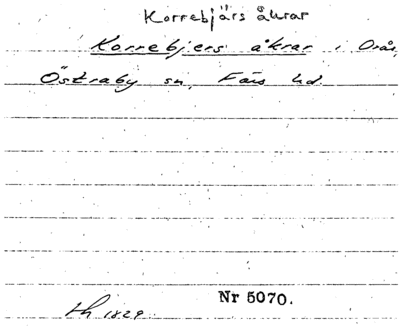 Korrebjärs åkrar
Korrebjers åkrar i Orås,
Östraby sn, Färs hd.
Nr 5070.
Lh 1829